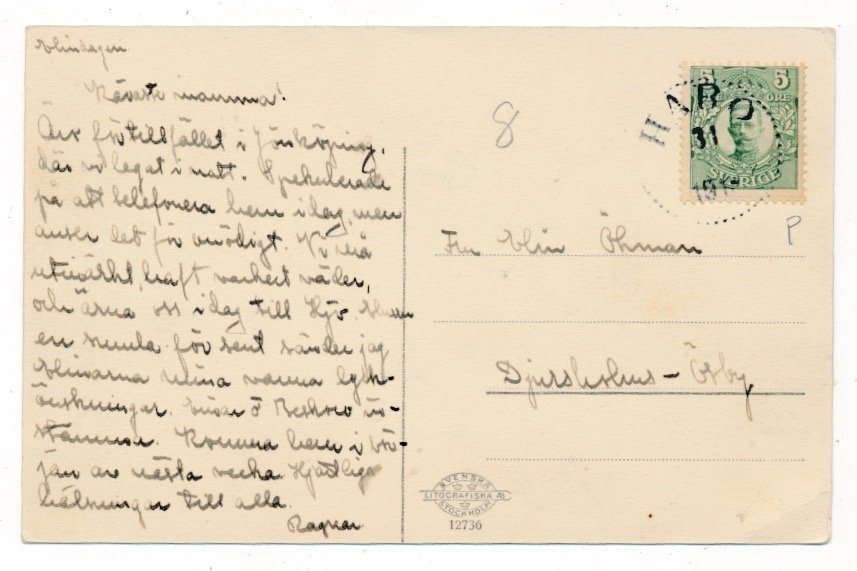 Elindagen
Käraste mamma!
Är för tillfället i Jönköping,
där vi legat i natt. Spekulerade
på att telefonera hem i dag, men
anser det för onödigt. Vi må
utmärkt, haft vackert väder,
och ärna oss i dag till Hjo.
en smula för sent sänder jag
Elinarna mina varma lyck-
önskningar. Sivan o
stämma. Komma hem i bör-
jan av nästa vecka. Hjärtliga
hälsningar till alla.
Ragnar
8
5 5
ÖRE
SVERIGE
HABO
31
Fru Elin Öhman
P
Djursholms-Ösby
SVENSKA
LITOGRAFISKA AB
STOCKHOLM
12736